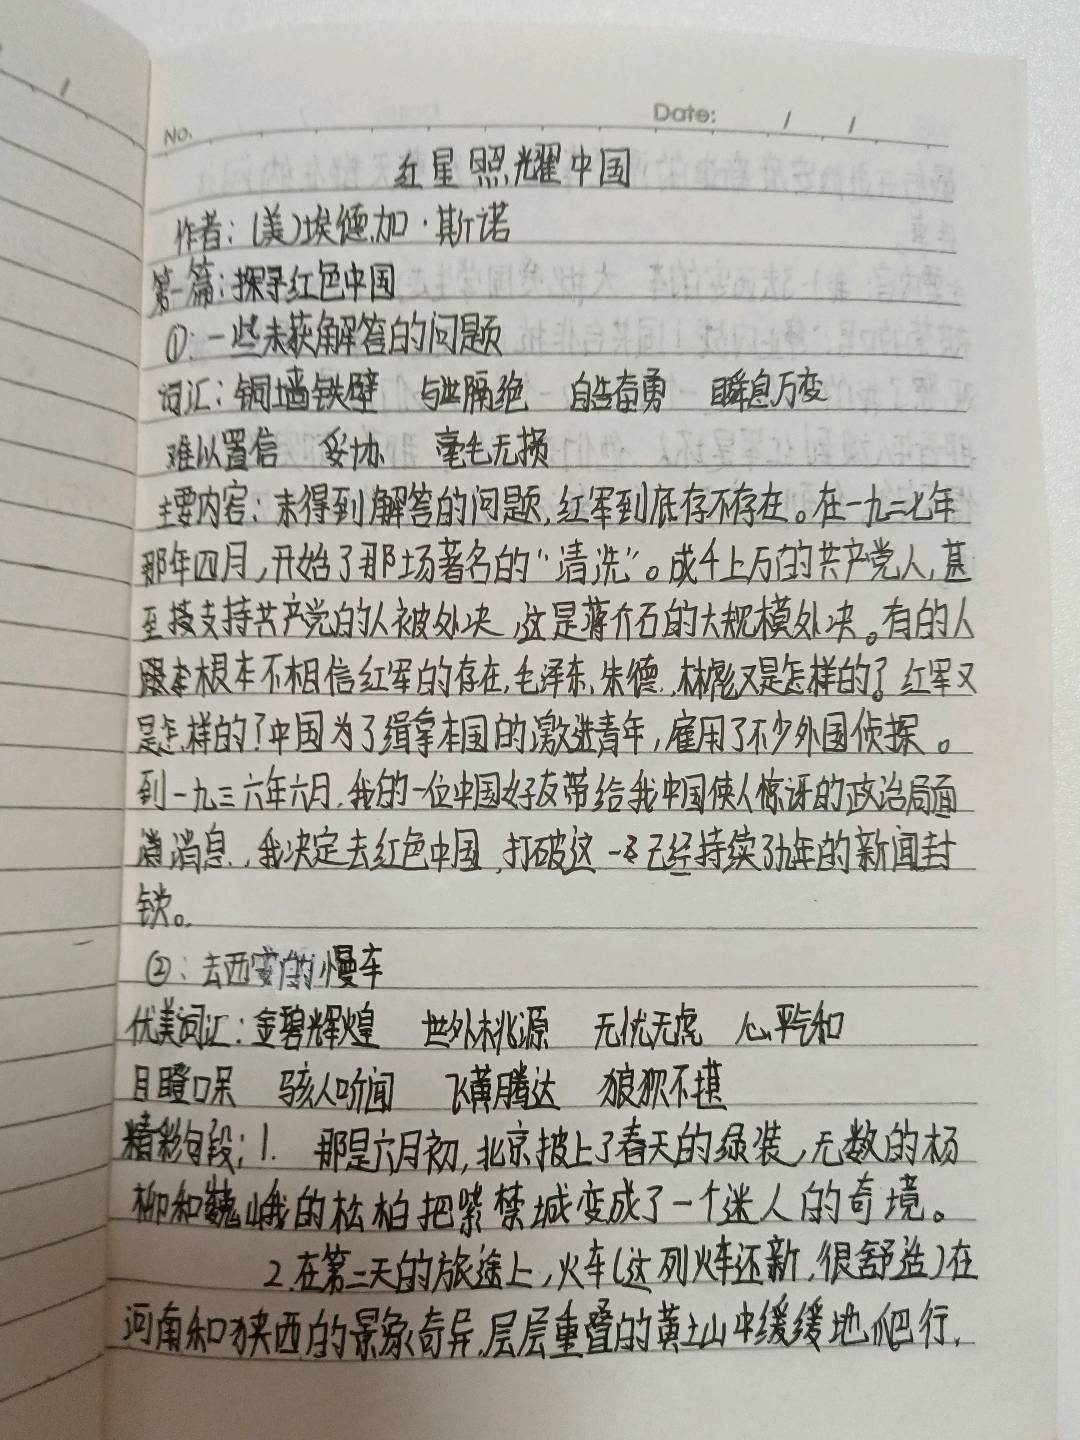 No. Date: / /
红星照耀中国
作者:(美)埃德加·斯诺
第一篇:探寻红色中国
①:一些未获解答的问题
词汇:铜墙铁壁 与世隔绝 自告奋勇 瞬息万变
难以置信 妥协 毫毛无损
主要内容:未得到解答的问题,红军到底存不存在。在一九二七年
那年四月,开始了那场著名的“清洗”。成千上万的共产党人,甚
至接支持共产党的人被处决,这是蒋介石的大规模处决。有的人
根本不相信红军的存在,毛泽东、朱德、林彪又是怎样的?红军又
是怎样的?中国为了缉拿本国的激进青年,雇用了不少外国侦探。
到一九三六年六月,我的一位中国好友带给我中国使人惊讶的政治局面
消息,我决定去红色中国,打破这一已经持续了九年的新闻封
锁。
②:去西安的慢车
优美词汇:金碧辉煌 世外桃源 无忧无虑 心平气和
目瞪口呆 骇人听闻 飞黄腾达 狼狈不堪
精彩句段:1. 那是六月初,北京披上了春天的绿装,无数的杨
柳和巍峨的松柏把紫禁城变成了一个迷人的奇境。
2.在第二天的旅途上,火车(这列火车还新,很舒适)在
河南和陕西的景象奇异,层层重叠的黄土山中缓缓地爬行,